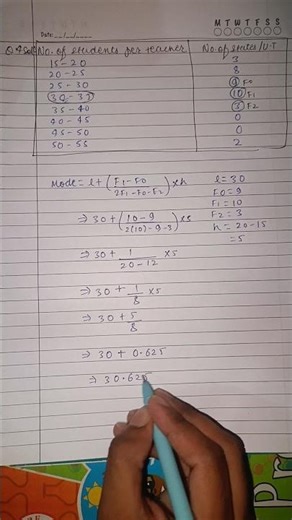 Date: / /
M T W T F S S
Q4 Sol No. of students per teacher No. of states/U.T
15-20 3
20-25 8
25-30 9 F0
30-35 10 F1
35-40 3 F2
40-45 0
45-50 0
50-55 2
Mode = l + (F1-F0 / 2F1-F0-F2) × h l = 30
F0 = 9
⇒ 30 + (10-9 / 2(10)-9-3) × 5 F1 = 10
F2 = 3
⇒ 30 + 1 / 20-12 × 5 h = 20-15
= 5
⇒ 30 + 1 / 8 × 5
⇒ 30 + 5 / 8
⇒ 30 + 0.625
⇒ 30.625